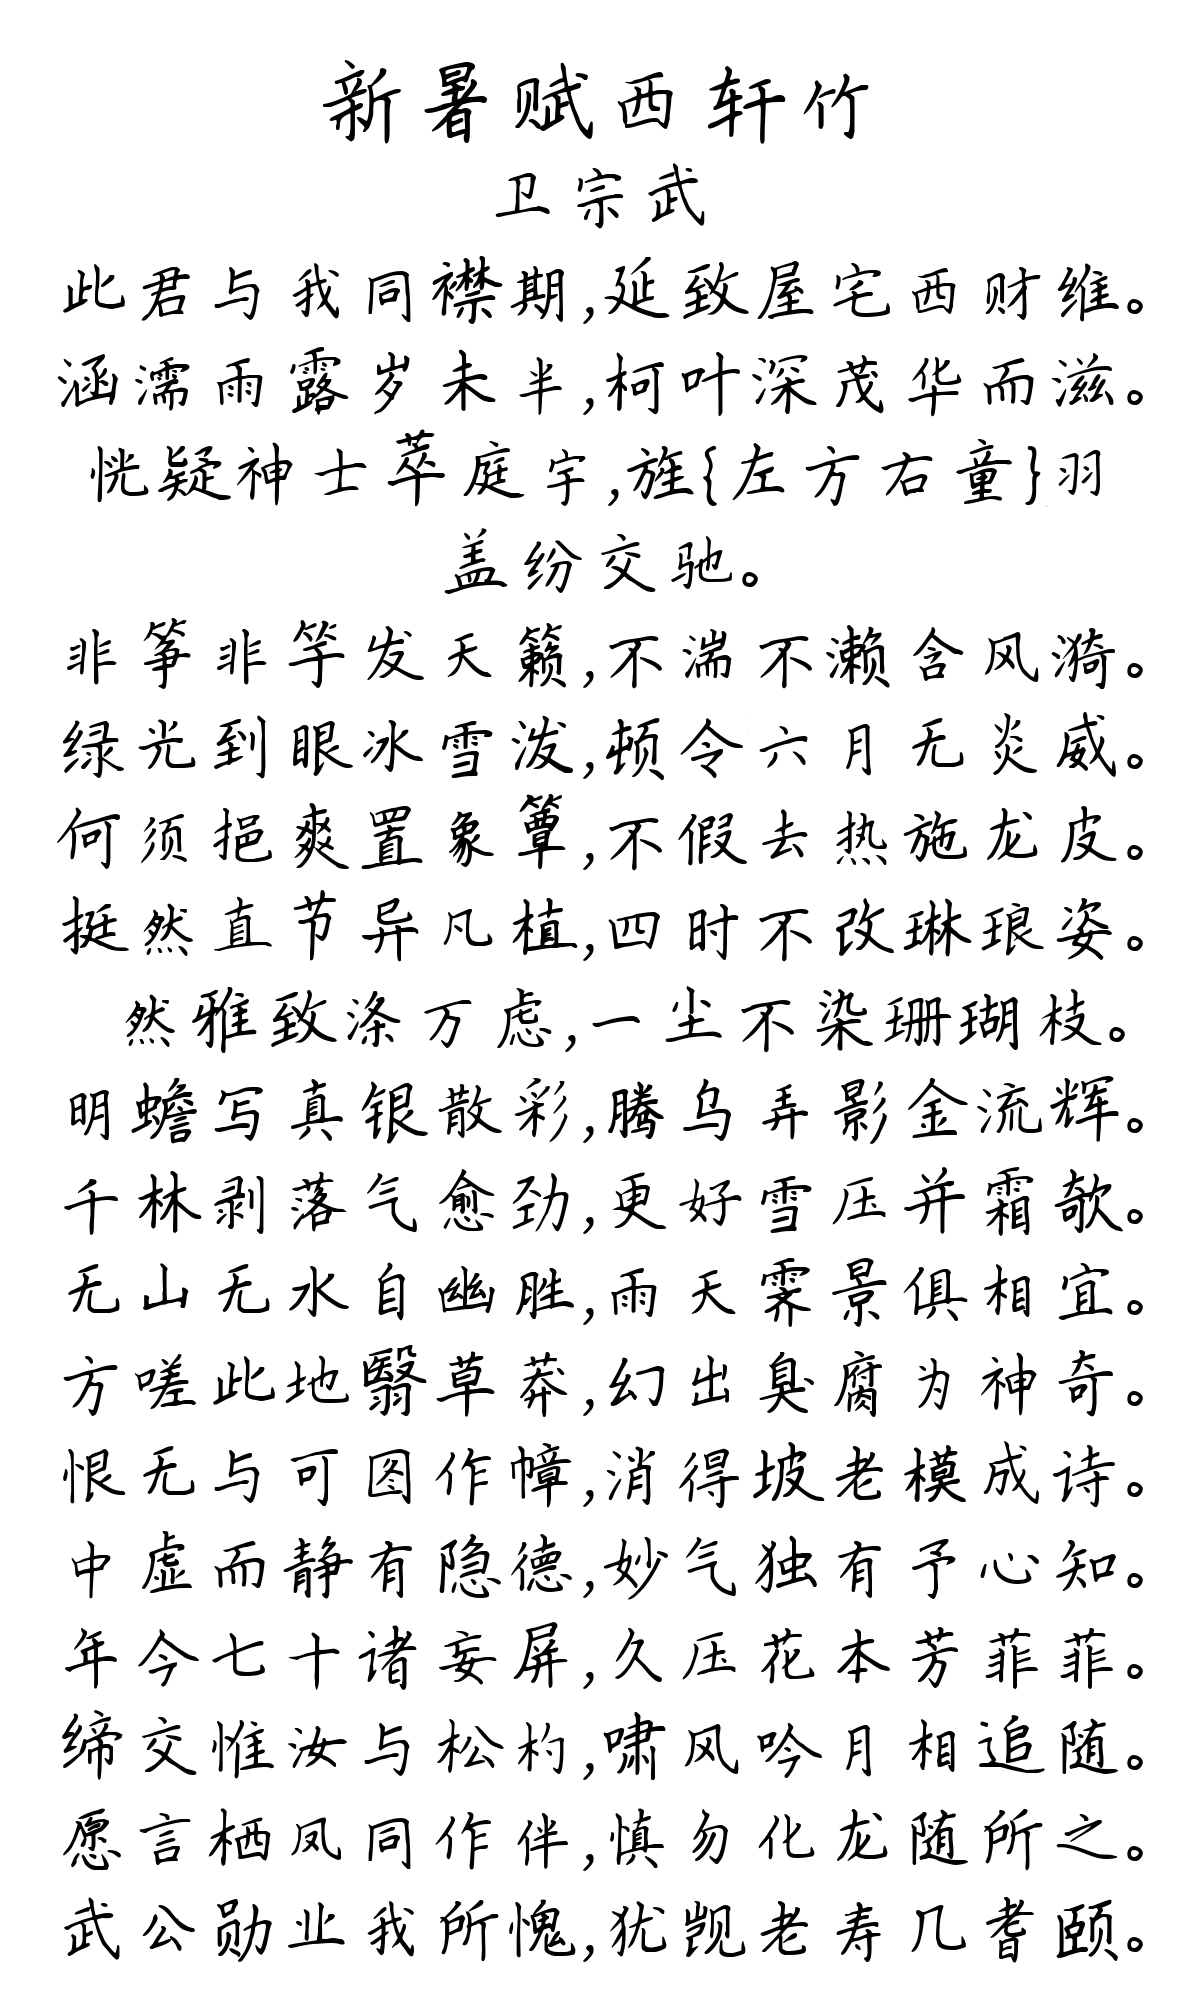 新暑赋西轩竹
卫宗武
此君与我同襟期,延致屋宅西财维。
涵濡雨露岁未半,柯叶深茂华而滋。
恍疑神士萃庭宇,旌{左方右童}羽
盖纷交驰。
非筝非竽发天籁,不湍不濑含风漪。
绿光到眼冰雪泼,顿令六月无炎威。
何须挹爽置象簟,不假去热施龙皮。
挺然直节异凡植,四时不改琳琅姿。
然雅致涤万虑,一尘不染珊瑚枝。
明蟾写真银散彩,腾乌弄影金流辉。
千林剥落气愈劲,更好雪压并霜欹。
无山无水自幽胜,雨天霁景俱相宜。
方嗟此地翳草莽,幻出臭腐为神奇。
恨无与可图作幛,消得坡老模成诗。
中虚而静有隐德,妙气独有予心知。
年今七十诸妄屏,久压花本芳菲菲。
缔交惟汝与松杓,啸风吟月相追随。
愿言栖凤同作伴,慎勿化龙随所之。
武公勋业我所愧,犹觊老寿几耆颐。